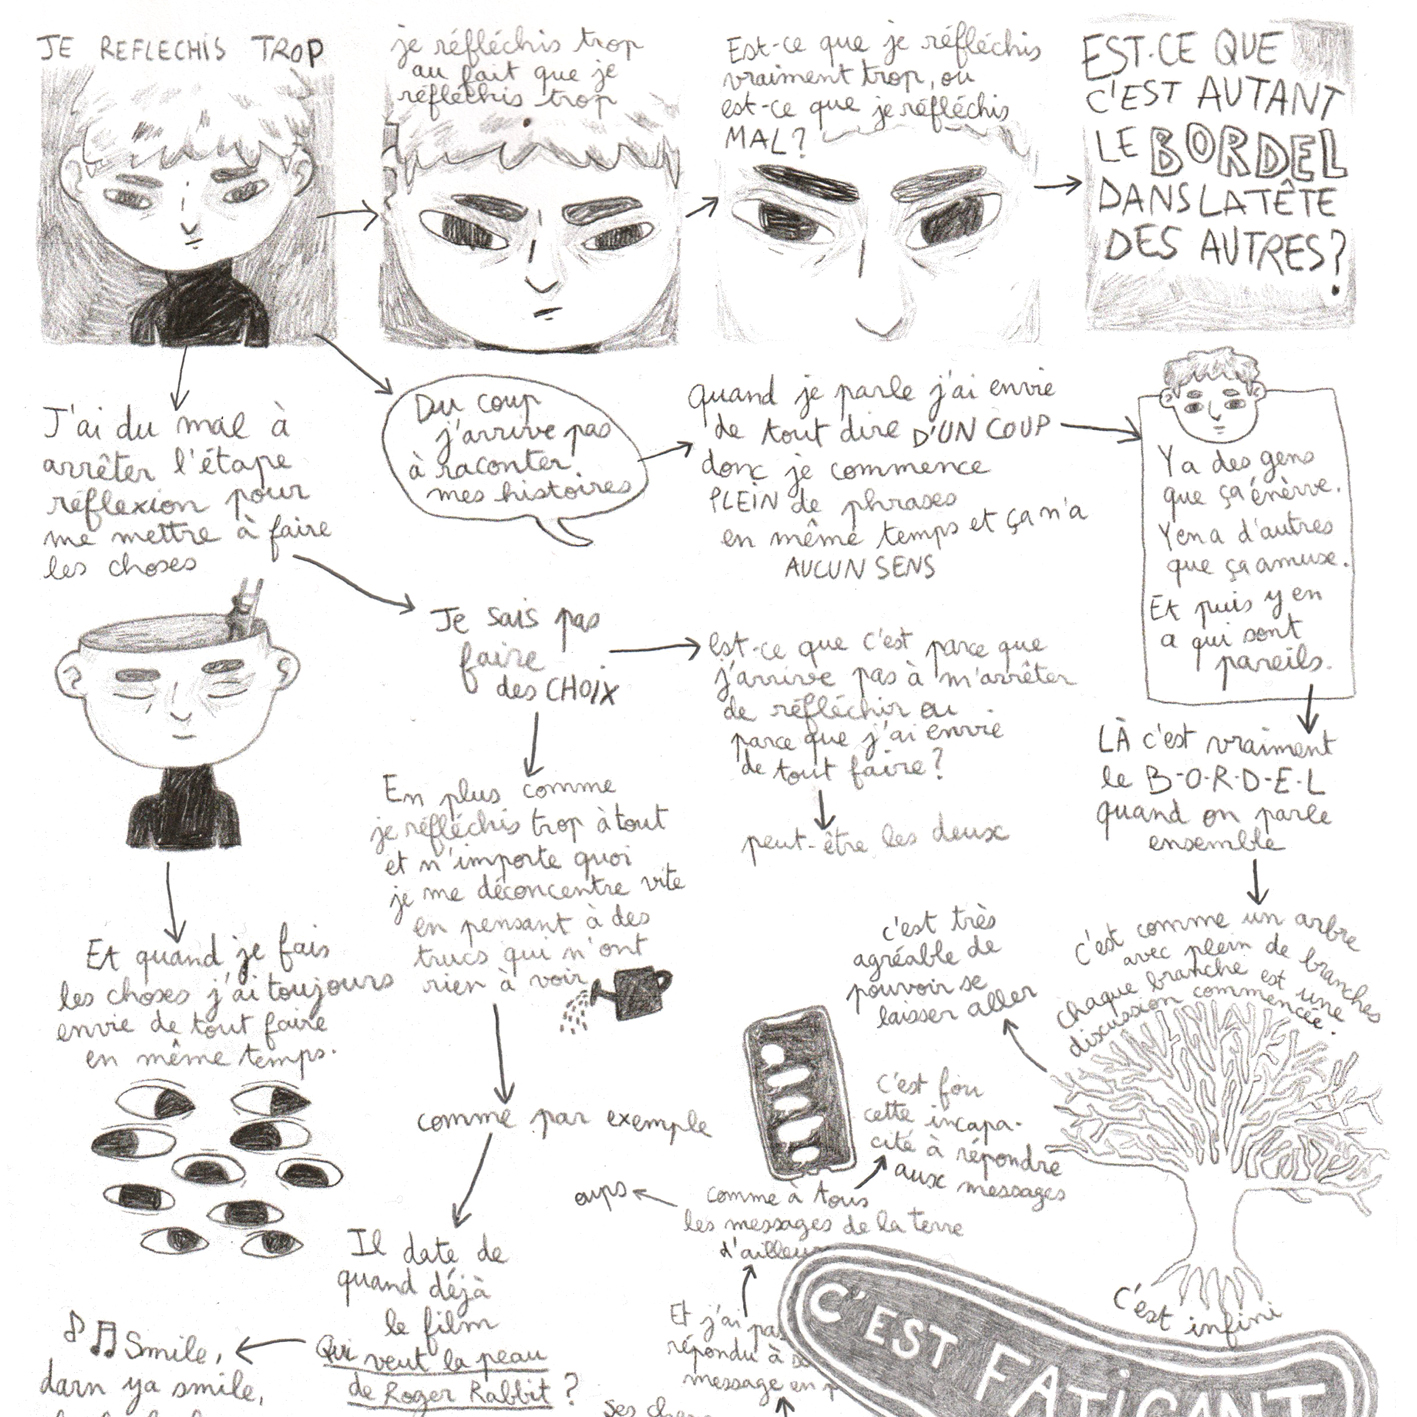 JE REFLECHIS TROP
je réfléchis trop
au fait que je
réfléchis trop
Est-ce que je réfléchis
vraiment trop, ou
est-ce que je réfléchis
MAL?
EST-CE QUE
C'EST AUTANT
LE BORDEL
DANS LA TÊTE
DES AUTRES?
J'ai du mal à
arrêter l'étape
réflexion pour
me mettre à faire
les choses
Du coup
j'arrive pas
à raconter
mes histoires
Quand je parle j'ai envie
de tout dire D'UN COUP
donc je commence
PLEIN de phrases
en même temps et ça n'a
AUCUN SENS
Y a des gens
que ça énerve.
Y en a d'autres
que ça amuse.
Et puis y en
a qui sont
pareils.
Je sais pas
faire
des CHOIX
est-ce que c'est parce que
j'arrive pas à m'arrêter
de réfléchir ou
parce que j'ai envie
de tout faire?
peut-être les deux
LÀ c'est vraiment
le B-O-R-D-E-L
quand on parle
ensemble
En plus comme
je réfléchis trop à tout
et n'importe quoi
je me déconcentre vite
en pensant à des
trucs qui n'ont
rien à voir
Et quand je fais
les choses j'ai toujours
envie de tout faire
en même temps.
c'est très
agréable de
pouvoir se
laisser aller
c'est comme un arbre
avec plein de branches
chaque branche est une
discussion commencée.
C'est fou
cette incapa-
cité à répondre
aux messages
comme par exemple
oups
comme à tous
les messages de la terre
d'ailleu
Il date de
quand déjà
le film
Qui veut la peau
de Roger Rabbit ?
Smile,
darn ya smile,
Et j'ai pas
répondu à s
message en p
ses
C'EST FATIGANT
c'est infini